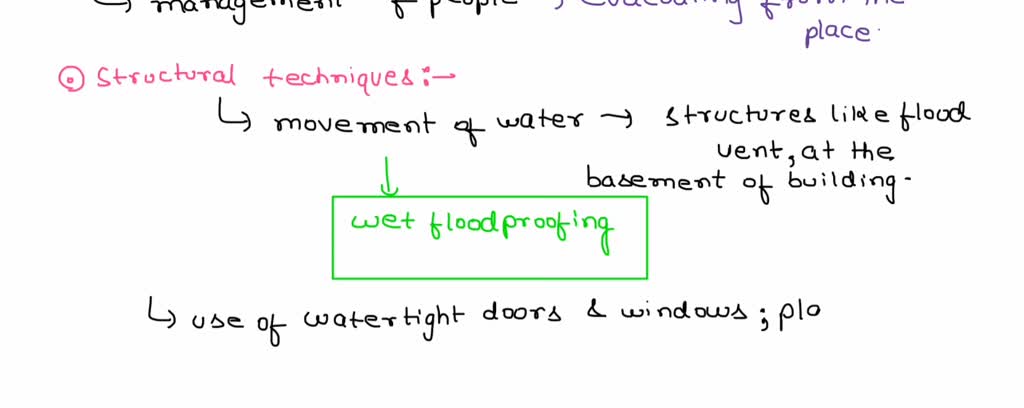 ↳ management of people ; evacuating from the
place.
⊙ Structural techniques:→
↳ movement of water → structures like flood
vent, at the
basement of building.
wet floodproofing
↳ use of watertight doors & windows; pla